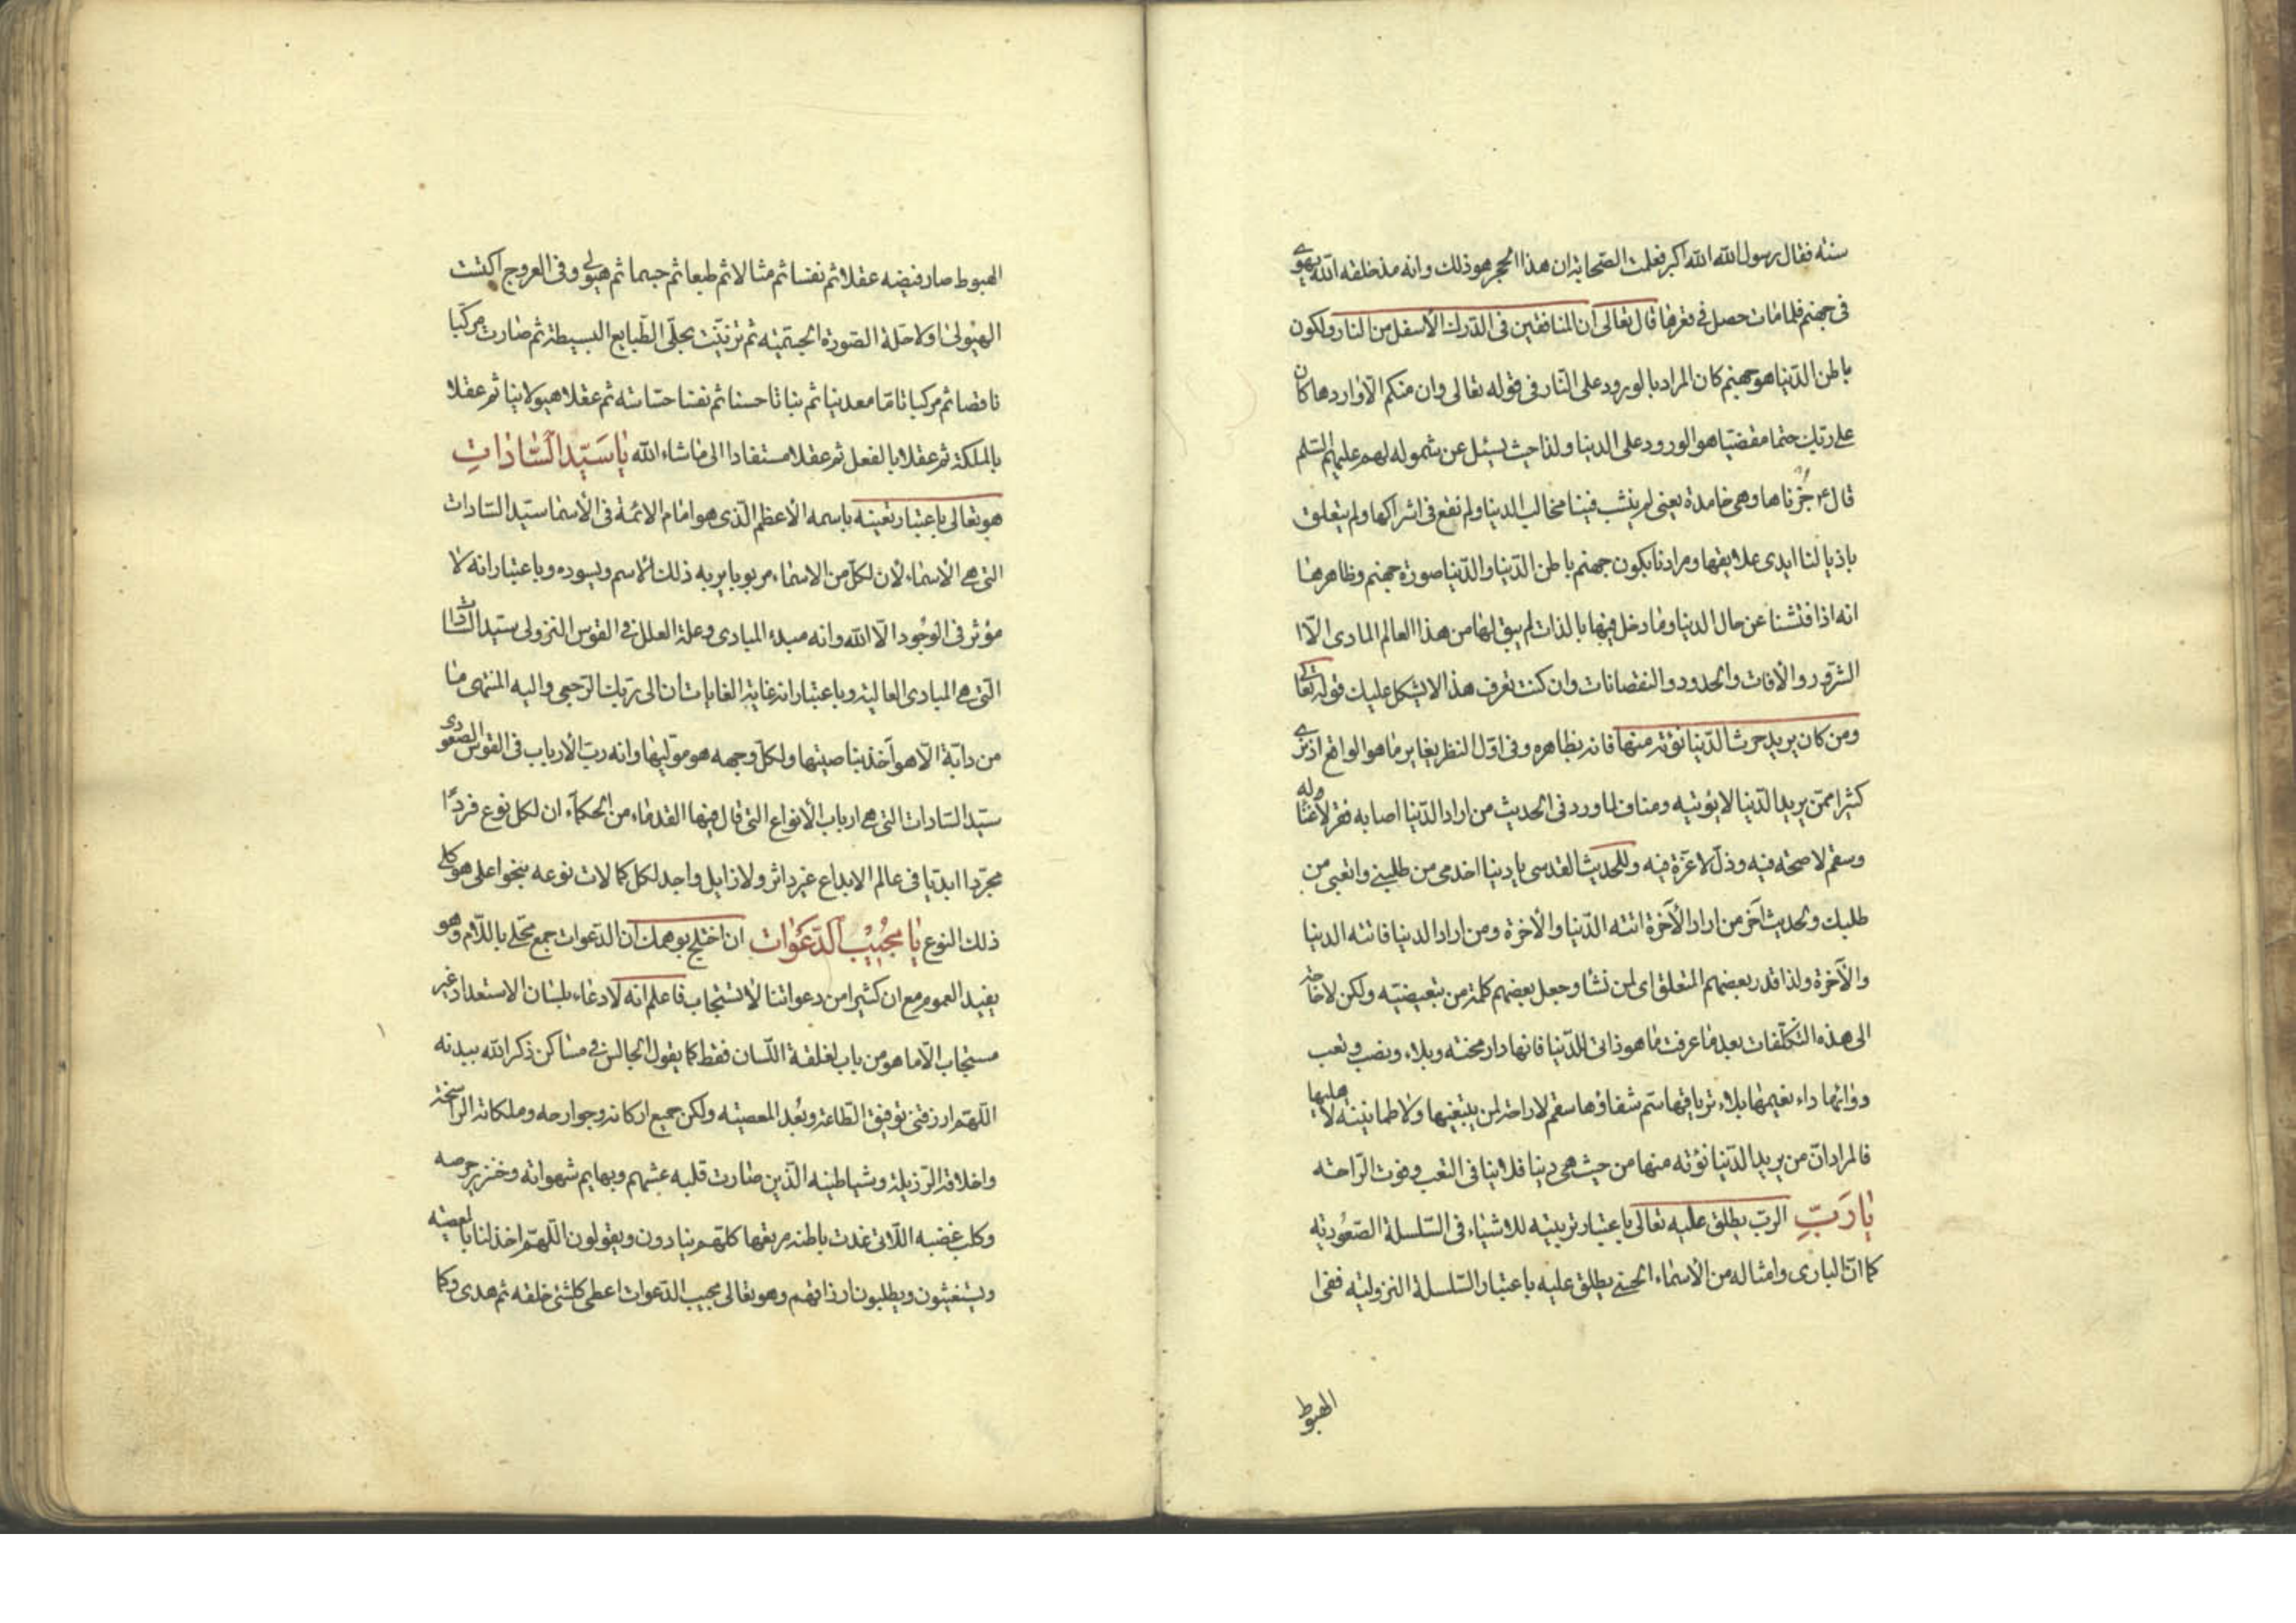 سنة فقال رسول الله الله اكبر فعلمت الصحابة ان هذا الحجر هو ذلك وانه مذ خلقه الله يهوى
فى جهنم فلما مات حصل فى قعرها قال تعالى ان المنافقين فى الدرك الأسفل من النار ولكون
باطن الدنيا هو جهنم كان المراد بالورود على النار فى قوله تعالى وان منكم الا واردها كان
على ربك حتما مقضيا هو الورود على الدنيا ولذا حيث يسئل عن شموله لهم عليهم السلم
قال ع جزناها وهى خامدة يعنى لم ينشب فينا مخالب الدنيا ولم نقع فى اشراكها ولم يتعلق
باذيالنا ايدى علايقها ومرادنا بكون جهنم باطن الدنيا والدنيا صورة جهنم وظاهرها
انه اذا فتشنا عن حال الدنيا وما دخل فيها بالذات لم يبق لها من هذا العالم المادى الا
الشرور والآفات والحدود والنقصانات وان كنت تعرف هذا لا يشكل عليك قوله تعالى
ومن كان يريد حرث الدنيا نؤته منها فانه بظاهره وفى اول النظر يغاير ما هو الواقع اذ نرى
كثيرا ممن يريد الدنيا لا يؤتيه ومناف لما ورد فى الحديث من اراد الدنيا اصابه فقر لا غناء له
وسقم لا صحة فيه وذل لا عزة فيه وللحديث القدسى يا دنيا اخدمى من طلبنى واتعبى من
طلبك ولحديث آخر من اراد الآخرة اتته الدنيا والآخرة ومن اراد الدنيا فاتته الدنيا
والآخرة ولذا قدر بعضهم المتعلق اى لمن نشاء وجعل بعضهم كلمة من تبعيضية ولكن لا حاجة
الى هذه التكلفات بعد ما عرفت ما هو ذاتى للدنيا فانها دار محنة وبلاء ونصب وتعب
ودوائها داء نعيمها بلاء ترياقها سم شفاؤها سقم لا راحة لمن يبتغيها ولا طمانينة لاهليها
فالمراد ان من يريد الدنيا نؤته منها من حيث هى دنيا فلاينافى التعب وفوت الراحة
يا رب الرب يطلق عليه تعالى باعتبار تربيته للاشياء فى السلسلة الصعودية
كما ان البارى وامثاله من الأسماء الحسنى يطلق عليه باعتبار السلسلة النزولية ففى
الهبوط
الهبوط صار فيضه عقلا ثم نفسا ثم مثالا ثم طبعا ثم جسما ثم هيولى وفى العروج اكتست
الهيولى اولا حلة الصورة الجسمية ثم تزينت بحلى الطبايع البسيطة ثم صارت مركبا
ناقصا ثم مركبا تاما معدنيا ثم نباتا حسنا ثم نفسا حساسة ثم عقلا هيولانيا ثم عقلا
بالملكة ثم عقلا بالفعل ثم عقلا مستفادا الى ما شاء الله يا سيد السادات
هو تعالى باعتبار تعينه باسمه الأعظم الذى هو امام الائمة فى الأسماء سيد السادات
التى هى الأسماء لأن لكل من الاسماء مربوبا يربه ذلك الاسم ويسوده وباعتبار انه لا
مؤثر فى الوجود الا الله وانه مبدء المبادى وعلة العلل فى القوس النزولى سيد السادات
التى هى المبادى العالية وباعتبار انه غاية الغايات ان الى ربك الرجعى واليه المنتهى ما
من دابة الا هو آخذ بناصيتها ولكل وجهه هو موليها وانه رب الارباب فى القوس الصعودى
سيد السادات التى هى ارباب الأنواع التى قال فيها القدماء من الحكماء ان لكل نوع فردا
مجردا ابديا فى عالم الابداع غير داثر ولا زايل واجد لكل كمالات نوعه بنحو اعلى هو كلى
ذلك النوع يا مجيب الدعوات ان اختلج بوهمك ان الدعوات جمع محلى باللام وهو
يفيد العموم مع ان كثيرا من دعواتنا لا تستجاب فاعلم انه لا دعاء بلسان الاستعداد غير
مستجاب الا ما هو من باب لقلقة اللسان فقط كما يقول الجالس فى مساكن ذكر الله ببدنه
اللهم ارزقنى توفيق الطاعة وبعد المعصية ولكن جميع اركانه وجوارحه وملكاته الراسخة
واخلاقه الرذيلة وشياطينه الذين صارت قلبه عشهم وبهايم شهواته وخنزير حرصه
وكلب غضبه اللاتى غدت باطنه مرتعها كلهم ينادون ويقولون اللهم اخذلنا بالمعصية
ويستغيثون ويطلبون ارزاقهم وهو تعالى مجيب الدعوات اعطى كلشئ خلقه ثم هدى وكما